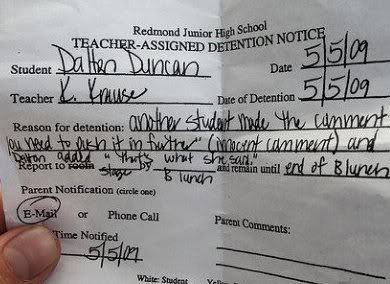 Redmond Junior High School
TEACHER-ASSIGNED DETENTION NOTICE
Student Dalton Duncan Date 5/5/09
Teacher K. Krause Date of Detention 5/5/09
Reason for detention: another student made the comment
"you need to push it in further" (innocent comment) and
Dalton added "that's what she said."
Report to room stage by B lunch and remain until end of B lunch
Parent Notification (circle one)
E-Mail or Phone Call Parent Comments:
Time Notified
5/5/09
White: Student